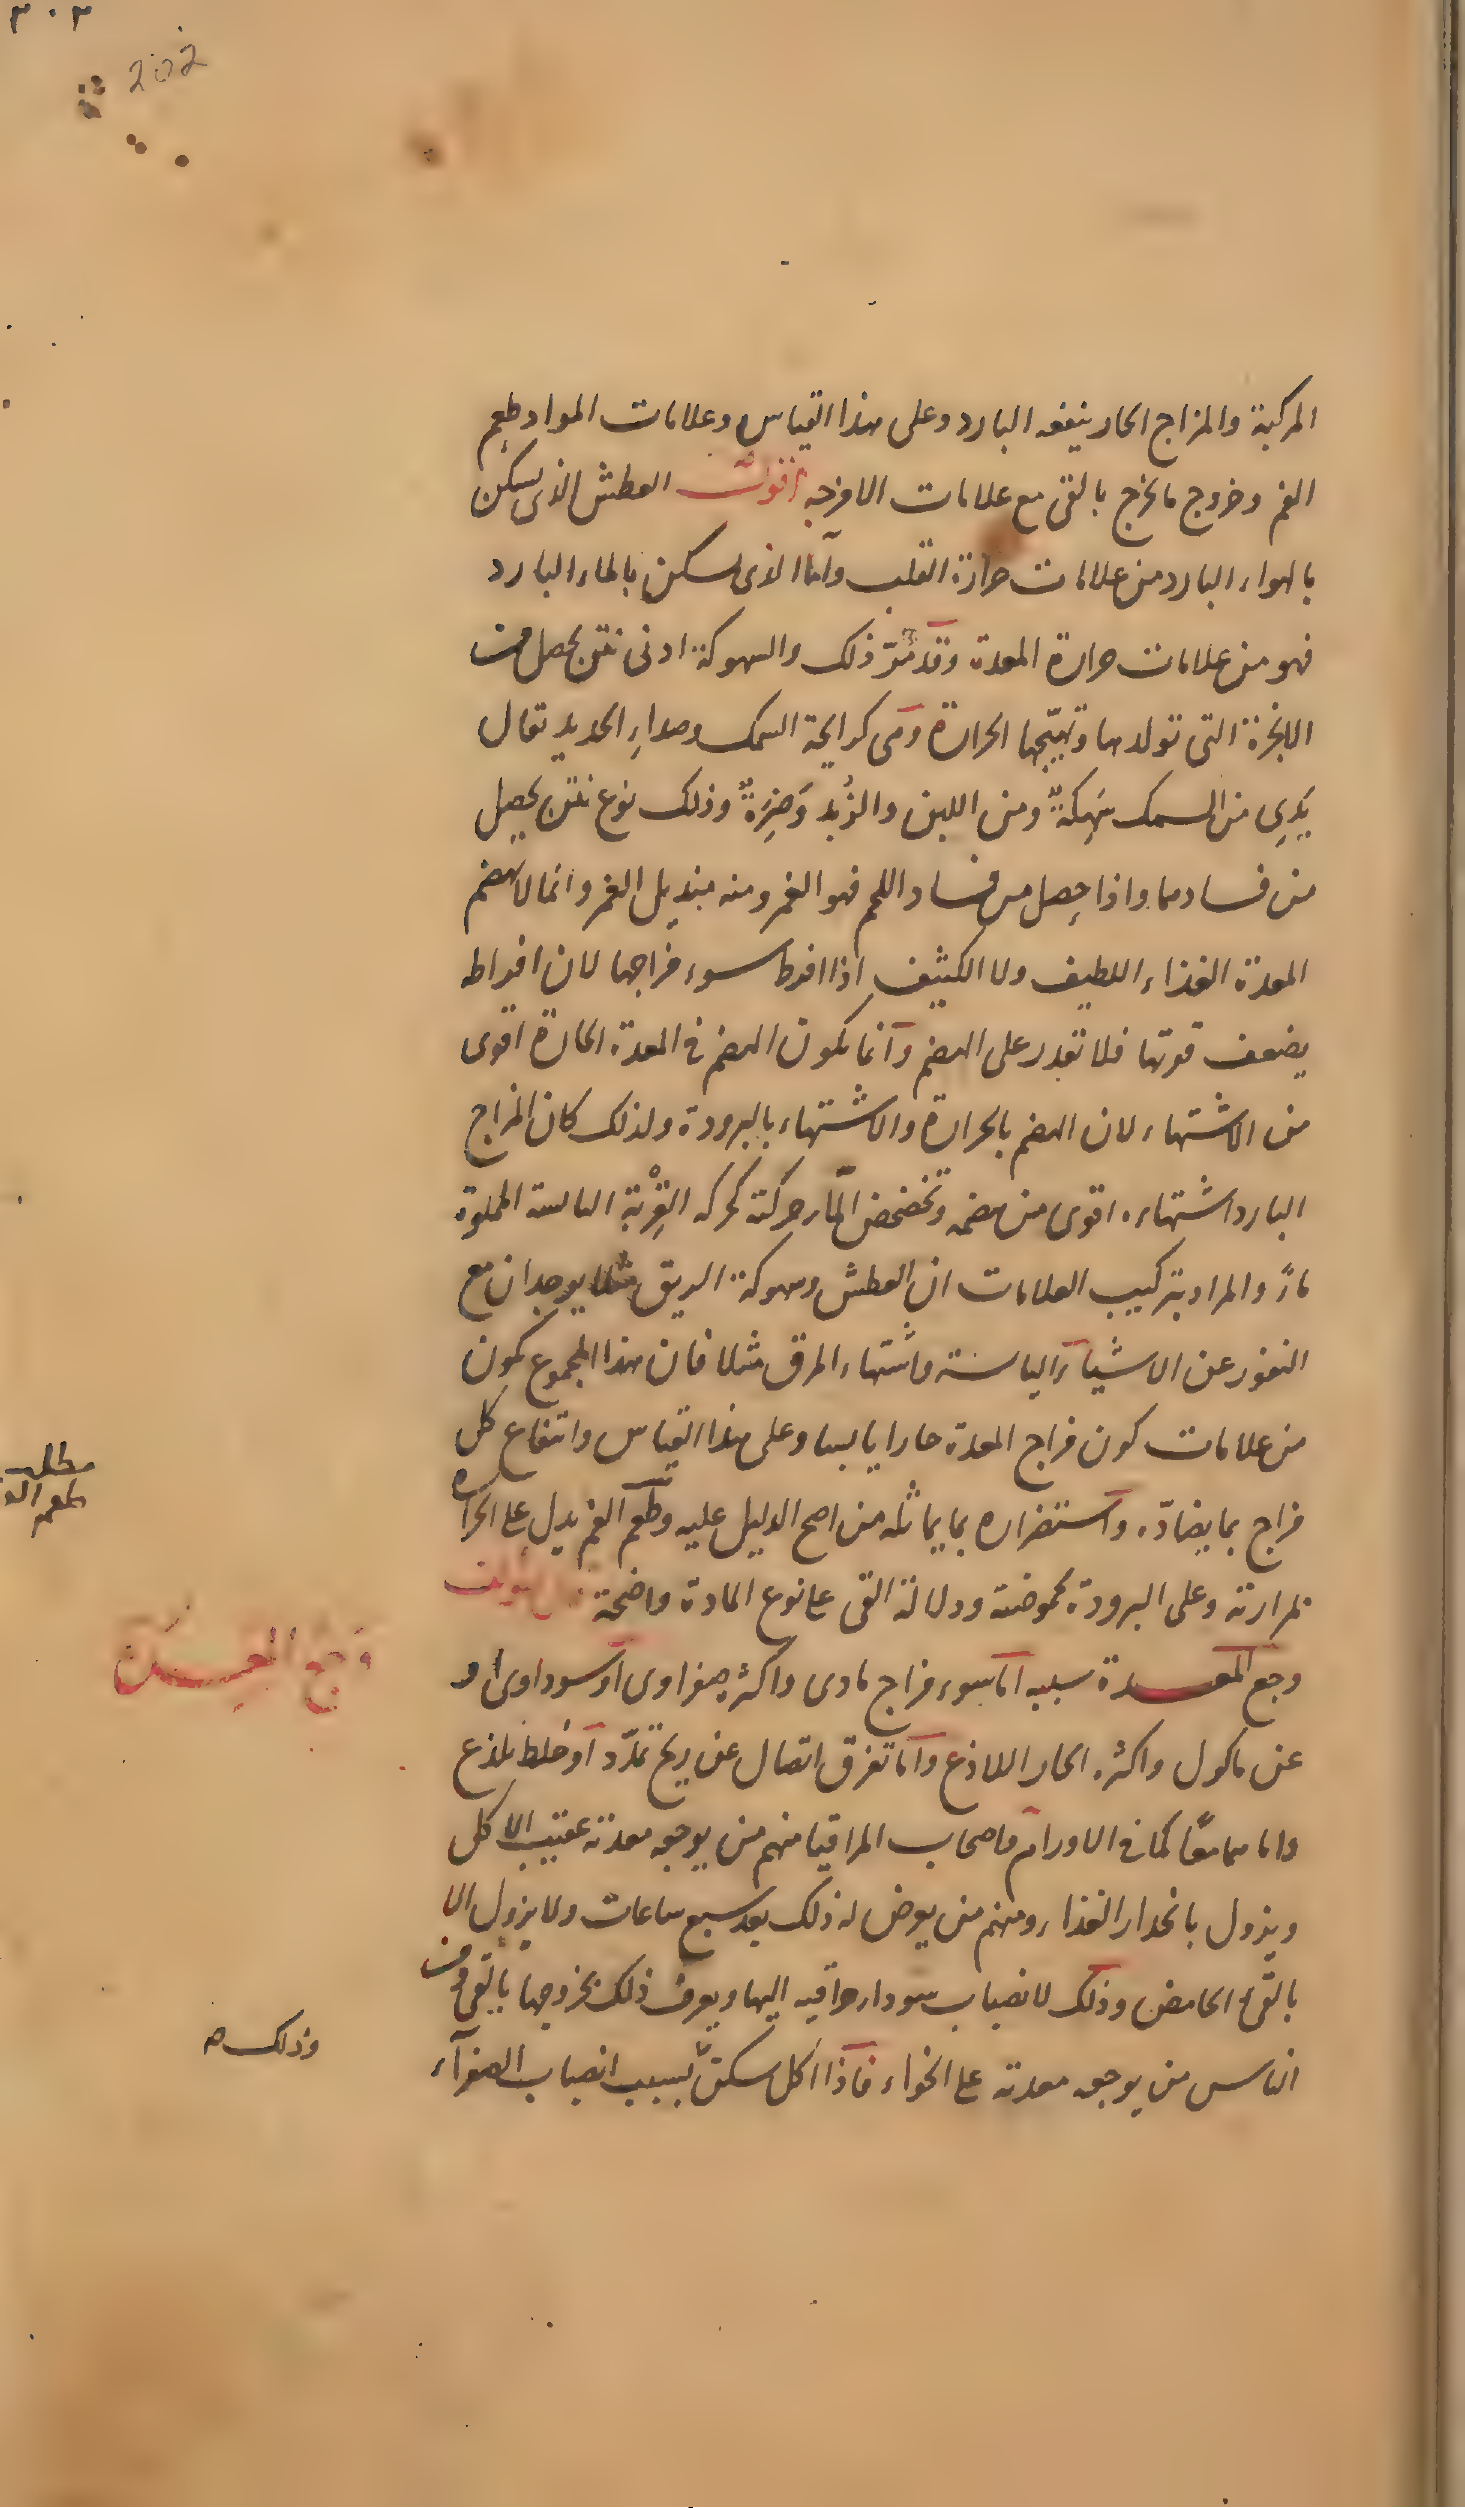 ٣٠٣
202
المركبة والمزاج الحار ينفعه البارد وعلى هذا القياس وعلامات المواد طعم
الفم وخروج ما يخرج بالقئ مع علامات الامزجه اقول العطش الذى يسكن
بالهواء البارد من علامات حرارة القلب وأما الذى يسكن بالماء البارد
فهو من علامات حرارة المعدة وقد مرّ ذلك والسهوكة ادنى نتن يحصل من
الابخرة التى تولدها وتهيّجها الحرارة وهى كرايحة السمك وصداءِ الحديد يقال
يَدِى من السمك سَهِكةٌ ومن اللبن والزُبد وَضِرَةٌ وذلك نوع نتن يحصل
من فسادهما واذا حصل من فساد اللحم فهو الغمر ومنه منديل الغمر وانما لا تهضم
المعدة الغذاء اللطيف ولا الكثيف اذا افرط سوء مزاجها لان افراطه
يضعف قوتها فلا تقدر على الهضم وانما يكون الهضم فى المعدة الحارة اقوى
من الاشتهاء لان الهضم بالحرارة والاشتهاء بالبرودة ولذلك كان المزاج
البارد اشتهاءه اقوى من هضمه وتخضخض المآء حركته كحركه القِرْبة اليابسة المملوة
ماءً والمراد بتركيب العلامات ان العطش وسهوكة الريق مثلا يوجدان مع
النفور عن الاشيآء اليابسة واشتهاء المرق مثلا فان هذا المجموع يكون
من علامات كون مزاج المعدة حارا يابسا وعلى هذا القياس وانتفاع كل
مزاج بما يضادّه واستضراره بما يماثله من اصح الدليل عليه وطعم الفم يدل على الحرارة
بمرارته وعلى البرودة بحموضته ودلالة القئ على نوع المادة واضحة
وجع المعدة سببه اما سوء مزاج مادى واكثره صفراوى أو سوداوى او
عن ماكول واكثره الحار اللاذع وأما تفرق اتصال عن ريح تمدّد أو خلط يلذع
واما هما معًا كما فى الاورام واصحاب المراقيا منهم من يوجعه معدته عقيب الاكل
ويزول بانحدار الغذاء ومنهم من يعرض له ذلك بعد سبع ساعات ولا يزول الا
بالقئ الحامض وذلك لانصباب سوداء حراقيه اليها ويعرف ذلك بخروجها بالقئ ومن
الناس من يوجعه معدته على الخواء فاذا اكل سكن بسبب انصباب الصفرآء
مطلب
وجع المعدة
وذلك صه